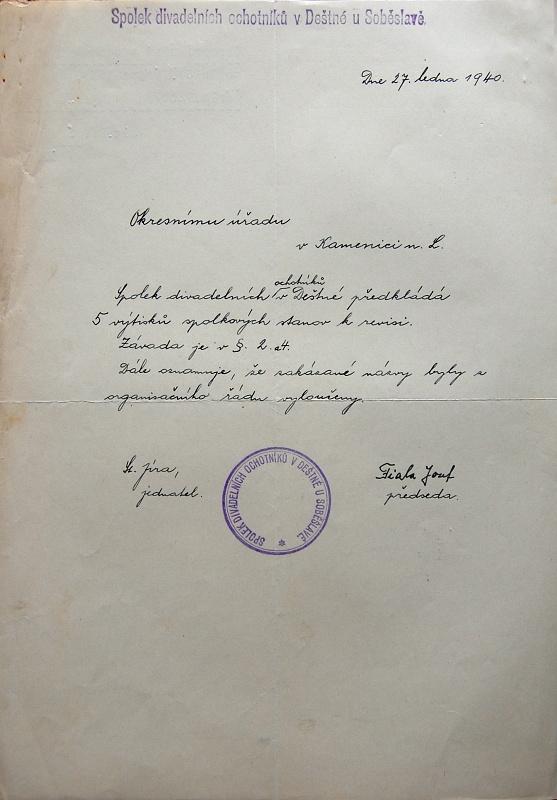 Spolek divadelních ochotníků v Deštné u Soběslavě.
Dne 27. ledna 1940.
Okresnímu úřadu
v Kamenici n. L.
ochotníků
Spolek divadelních v Deštné předkládá
5 výtisků spolkových stanov k revisi.
Závada je v §. 2. a4.
Dále oznamuje, že zakázané názvy byly z
organisačního řádu vyloučeny.
St. Jíra,
jednatel.
Fiala Josef
předseda.
SPOLEK DIVADELNÍCH OCHOTNÍKŮ V DEŠTNÉ U SOBĚSLAVĚ.